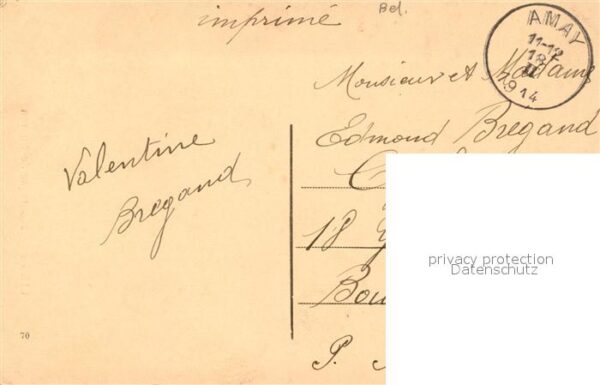 imprimé
Bel.
AMAY
11-12
18
II
1914
Monsieur et Madame
Edmond Bregand
Valentine
Bregand
18
P.
70
privacy protection
Datenschutz